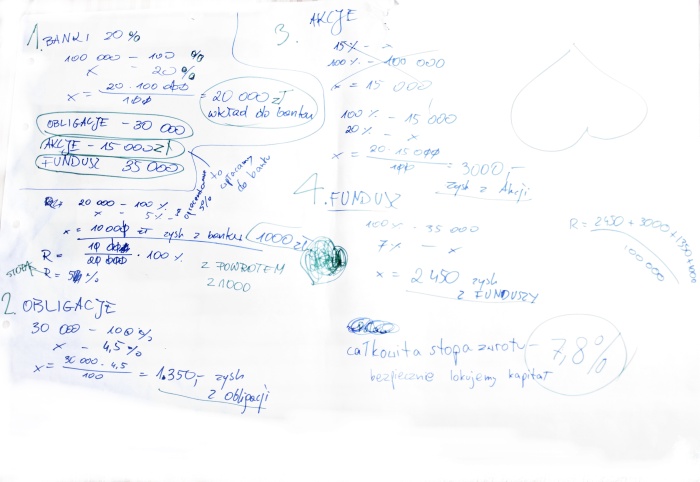 1. BANKI 20%
100 000 - 100 %
x - 20%
x = 20 · 100 000 / 100 = 20 000 zł
wkład do banku
OBLIGACJE - 30 000
AKCJE - 15 000 zł
FUNDUSZ 35 000
to
wpłacamy
do banku
oprocentowanie
5%
20 000 - 100 %
x - 5%
x = 1000 zł zysk z banku 1000 zł
R = 1000 / 20 000 · 100 %
STOPA R = 5 %
Z POWROTEM
21000
2. OBLIGACJE
30 000 - 100 %
x - 4,5 %
x = 30 000 · 4,5 / 100 = 1.350,- zysk
z obligacji
3. AKCJE
15% - x
100% - 100 000
x = 15 000
100 % - 15 000
20 % - x
x = 20 · 15 000 / 100 = 3000,-
zysk z Akcji
4. FUNDUSZ
100% · 35 000
7% - x
x = 2 450 zysk
z FUNDUSZY
R = 2450 + 3000 + 1350 + 1000 / 100 000
całkowita stopa zwrotu - 7,8%
bezpieczne lokujemy kapitał